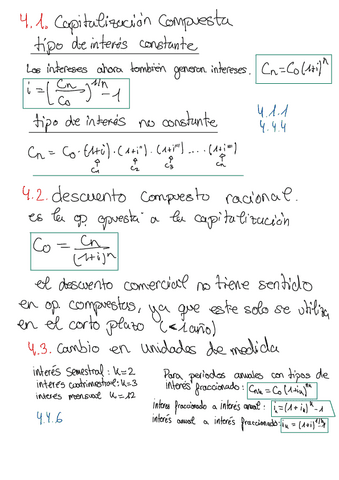 4.1. Capitalización Compuesta
tipo de interés constante
Los intereses ahora también generan intereses. Cn = C0 (1+i)^n
i = (Cn/C0)^1/n - 1
4.1.1
4.4.4
tipo de interés no constante
Cn = C0 · (1+i) · (1+i') · (1+i'') ..... (1+i^m)
C1 C2 C3 Cn
4.2. descuento compuesto racional.
es la op. opuesta a la capitalización
C0 = Cn/(1+i)^n
el descuento comercial no tiene sentido
en op. compuestas, ya que este solo se utiliza
en el corto plazo (<1año)
4.3. cambio en unidades de medida
interés semestral: k=2
interés cuatrimestral: k=3
interés mensual k=12
4.4.6
Para periodos anuales con tipos de
interés fraccionado: Cnk = C0 (1+ik)^nk
interés fraccionado a interés anual: i = (1+ik)^k - 1
interés anual a interés fraccionado: ik = (1+i)^1/k - 1